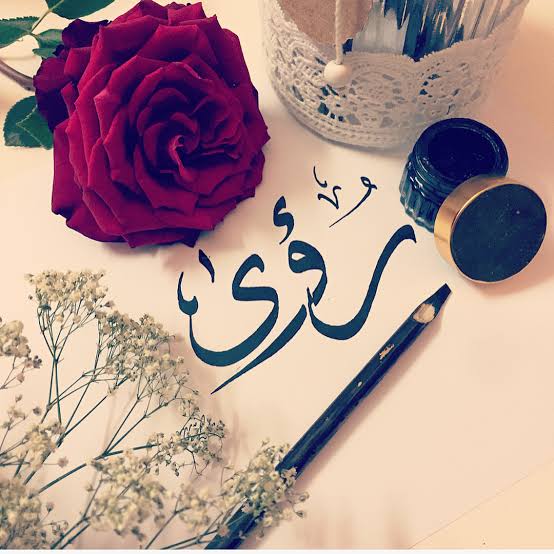 رُؤى